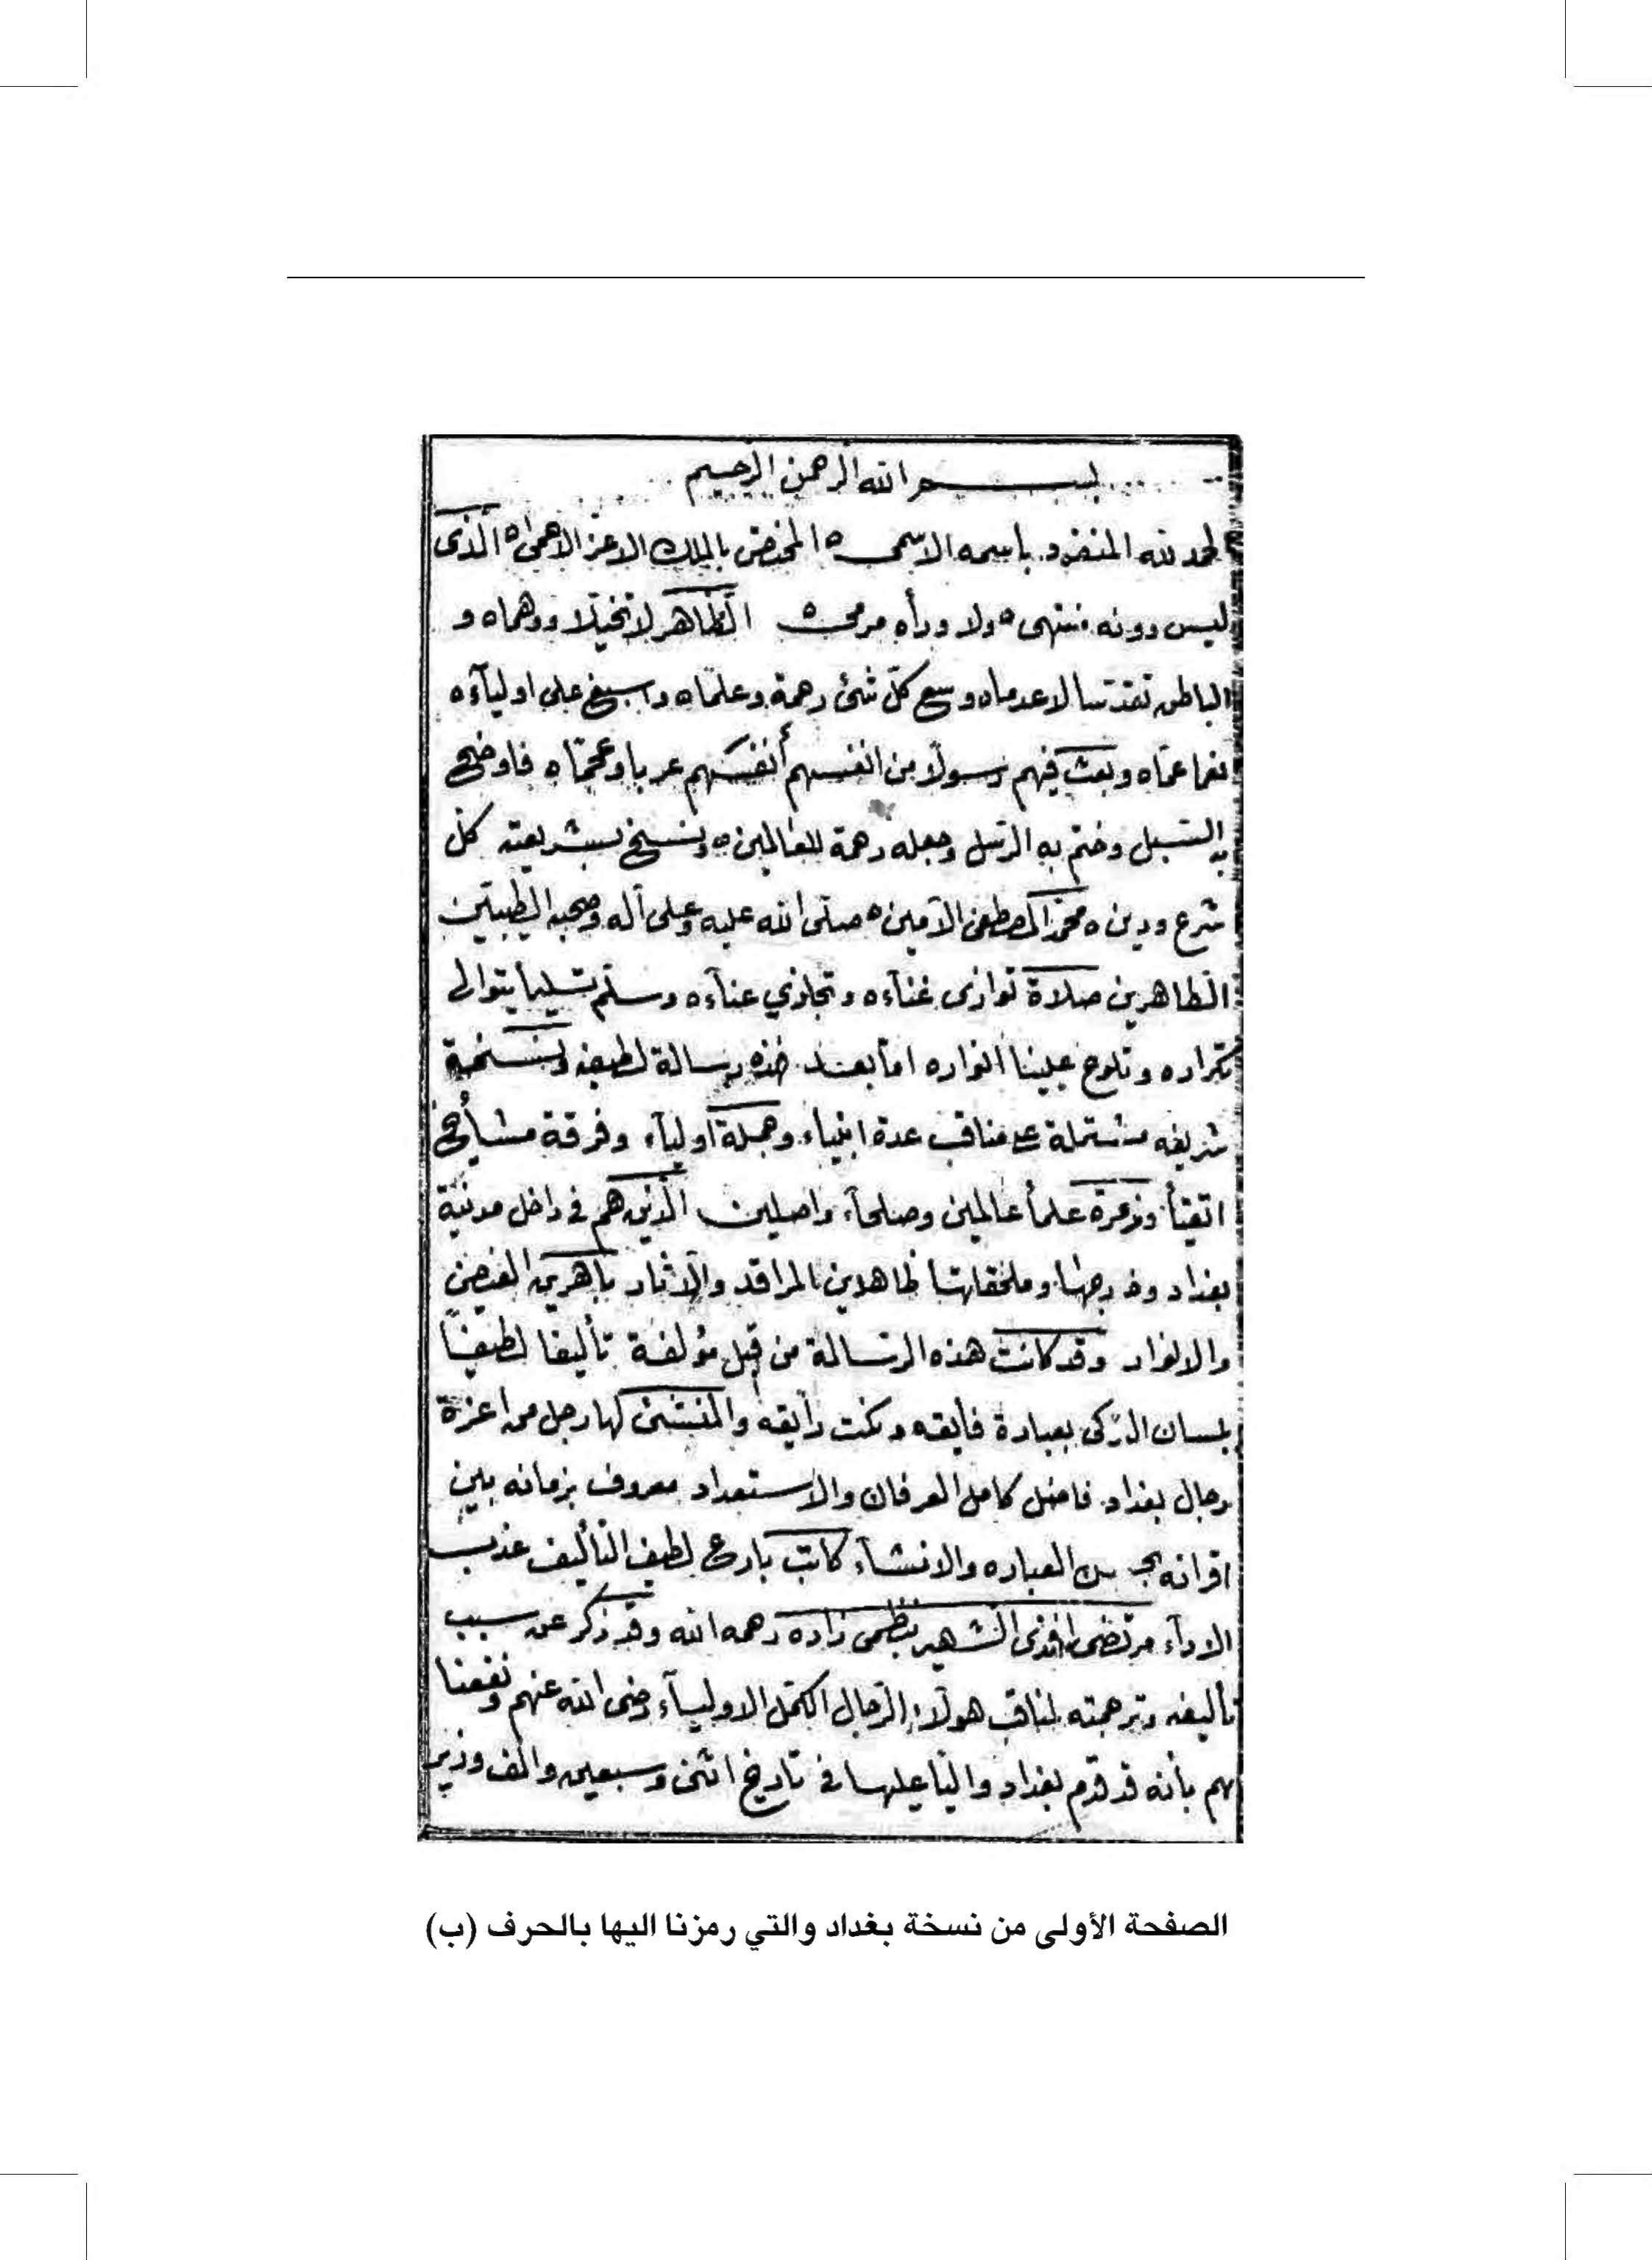 بسم الله الرحمن الرحيم
الحمد لله المنفرد باسمه الاسمى ه المختص بالملك الاعز الاحمى ه الذى
ليس دونه منتهى ه ولا ورأه مرمى ه الظاهر لا تخيلا ووهما ه و
الباطن تقدسا لا عدما ه وسع كل شئ رحمة وعلما ه واسبغ على اوليآءه
نعما عما ه وبعث فيهم رسولا من انفسهم أنفسهم عربا وعجما ه فاوضح
به السبل وختم به الرسل وجعله رحمة للعالمين ه ونسخ بشريعته كل
شرع ودين ه محمد المصطفى الآمين ه صلى الله عليه وعلى آله وصحبه الطيبين
الطاهرين صلاة توازى غنآءه وتجازي عنآءه وسلم تسليما يتوالى
تكراره وتلوح علينا انواره اما بعد فهذه رسالة لطيفه ونسخة
شريفه مشتملة على مناقب عدة انبياء وجملة اوليآء وفرقة مشايخ
اتقيأ وزمرة علمأ عالمين وصلحآء واصلين الذين هم فى داخل مدينة
بغداد وخارجها وملحقاتها ظاهرين المراقد والآثار باهرين الفيض
والانوار وقد كانت هذه الرسالة من قبل مؤلفة تأليفا لطيفا
بلسان التركى بعبارة فايقه ونكت رايقه والمنشئ لها رجل من اعزة
رجال بغداد فاضل كامل العرفان والاستعداد معروف بزمانه بين
اقرانه العباره والانشآء كاتب بارع لطيف التأليف عذب
الادآء مرتضى افندى الشهير بنظمى زاده رحمه الله وقد ذكر عن سبب
تأليفه وترجمته لمناقب هولآء الرجال الكمل الاوليآء رضى الله عنهم ونفعنا
بهم بأنه قد قدم بغداد واليا عليها فى تاريخ اثنى وسبعين والف وزير
الصفحة الأولى من نسخة بغداد والتي رمزنا اليها بالحرف (ب)